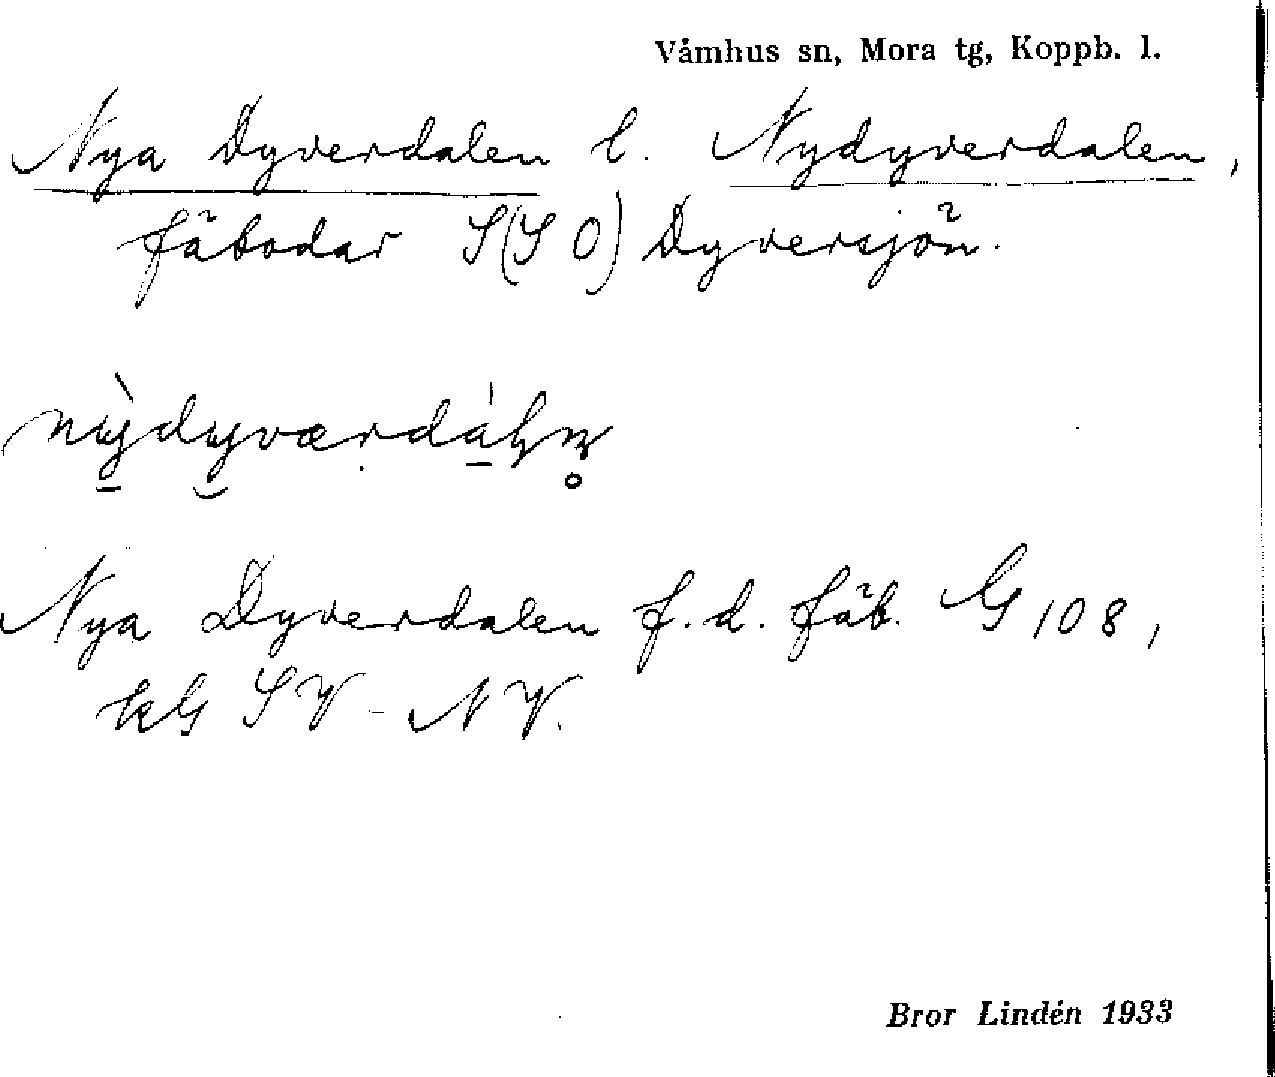 Våmhus sn, Mora tg, Koppb. l.
Nya Dyverdalen l. Nydyverdalen,
fäbodar S(SO) Dyversjön.
Nya Dyverdalen f.d. fäb. G 108,
kG SV-NV.
Bror Lindén 1933